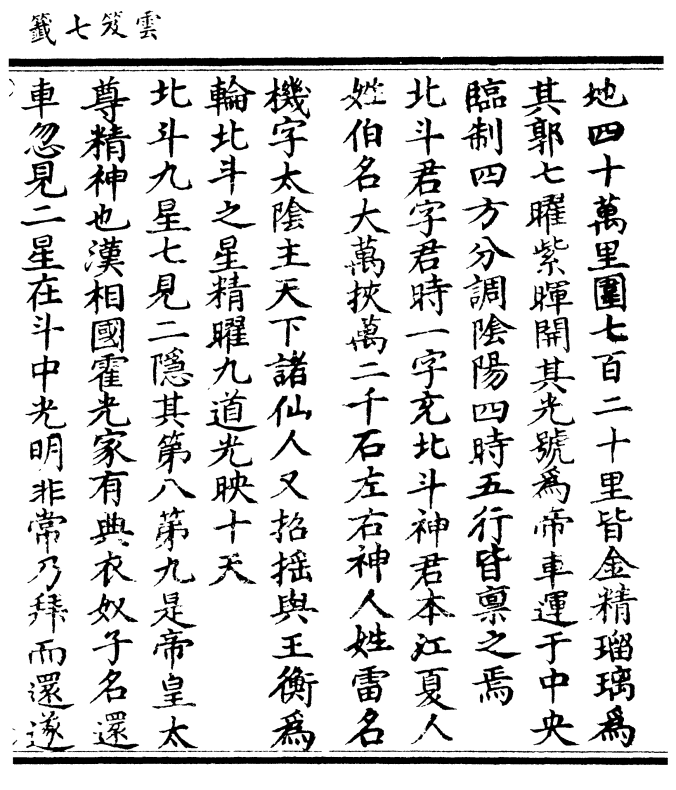 雲笈七籤
地四十萬里圍七百二十里皆金精瑠璃爲
其郭七曜紫暉開其光號爲帝車運于中央
臨制四方分調陰陽四時五行皆禀之焉
北斗君字君時一字充北斗神君本江夏人
姓伯名大萬挾萬二千石左右神人姓雷名
機字太陰主天下諸仙人又招摇與王衡爲
輪北斗之星精曜九道光映十天
北斗九星七見二隱其第八第九是帝皇太
尊精神也漢相國霍光家有典衣奴子名還
車忽見二星在斗中光明非常乃拜而還遂